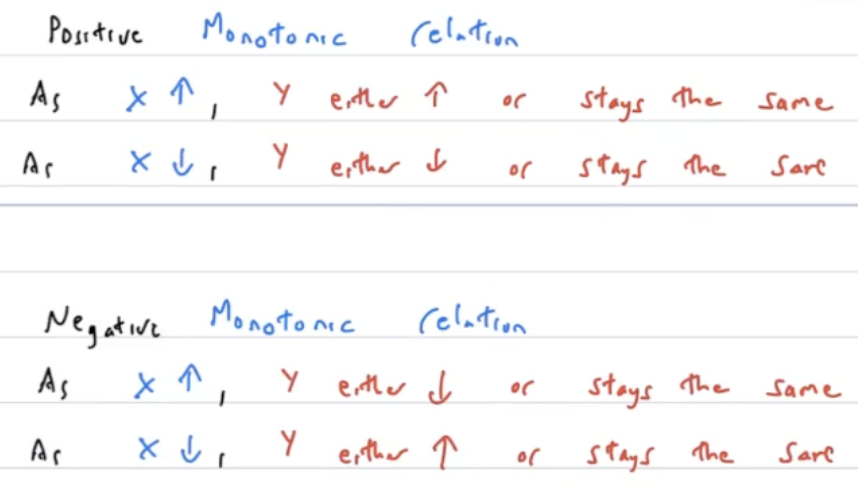 Positive Monotonic relation
As X ↑, Y either ↑ or stays the same
As X ↓, Y either ↓ or stays the same
Negative Monotonic relation
As X ↑, Y either ↓ or stays the same
As X ↓, Y either ↑ or stays the same